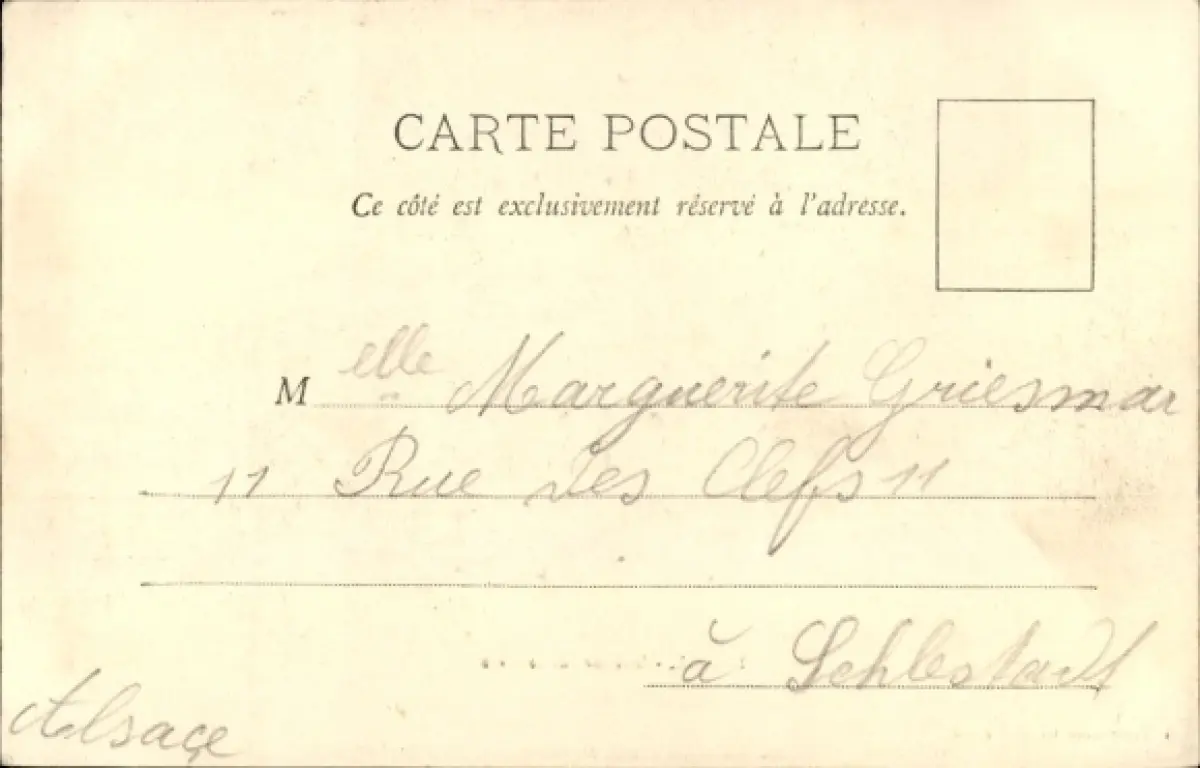 CARTE POSTALE
Ce côté est exclusivement réservé à l'adresse.
Melle Marguerite Griesmar
11 Rue des Clefs 11
à Schlestadt
Alsaçe